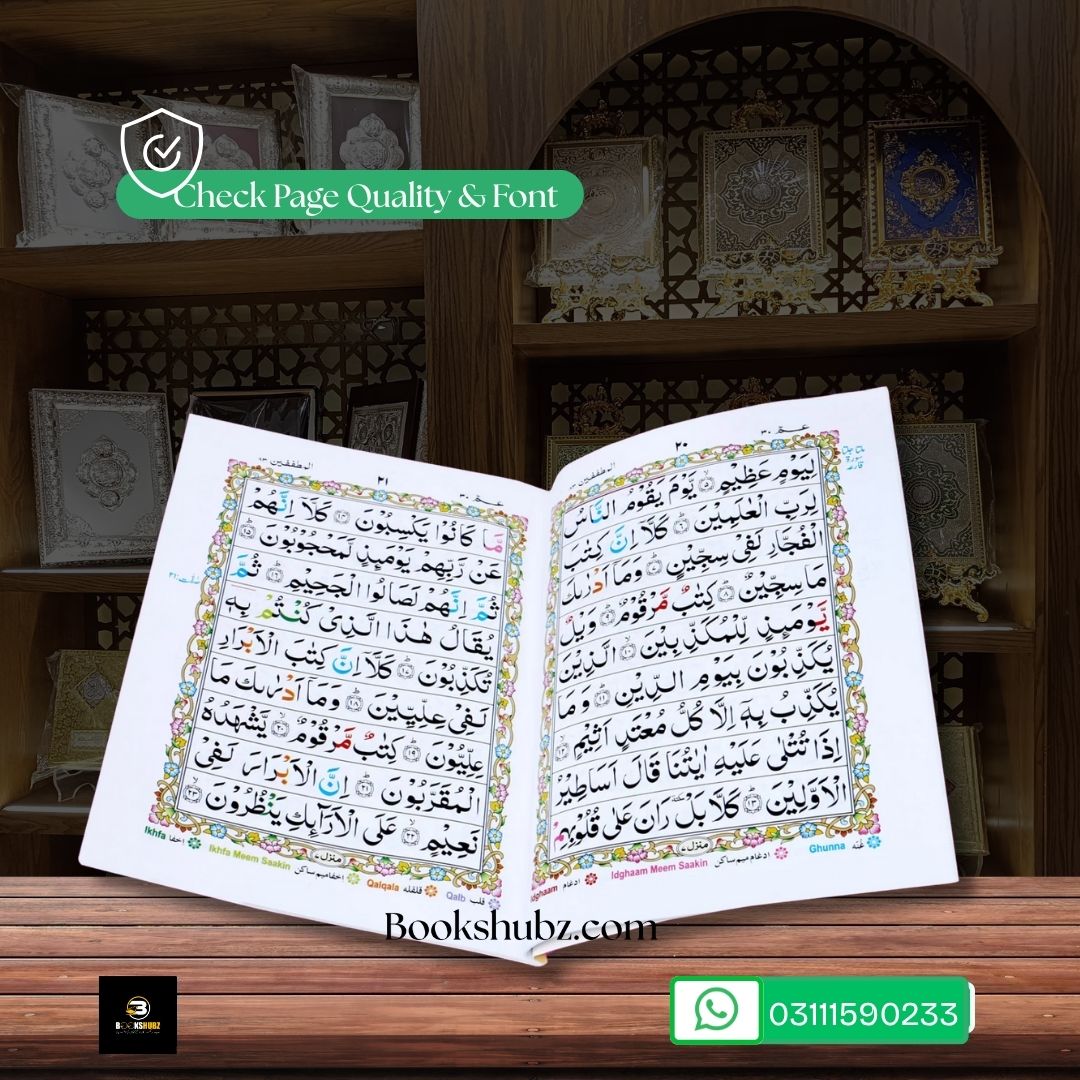 Check Page Quality & Font
عـمّ ٣٠
٢٠
المطففين ٨٣
لِيَوْمٍ عَظِيْمٍ ۙ﴿٥﴾ يَّوْمَ يَقُوْمُ النَّاسُ
لِرَبِّ الْعٰلَمِيْنَ ؕ﴿٦﴾ كَلَّاۤ اِنَّ كِتٰبَ
الْفُجَّارِ لَفِيْ سِجِّيْنٍ ؕ﴿٧﴾ وَمَاۤ اَدْرٰىكَ
مَا سِجِّيْنٌ ؕ﴿٨﴾ كِتٰبٌ مَّرْقُوْمٌ ؕ﴿٩﴾ وَيْلٌ
يَّوْمَىِٕذٍ لِّلْمُكَذِّبِيْنَ ۙ﴿١٠﴾ الَّذِيْنَ
يُكَذِّبُوْنَ بِيَوْمِ الدِّيْنِ ؕ﴿١١﴾ وَمَا
يُكَذِّبُ بِهٖۤ اِلَّا كُلُّ مُعْتَدٍ اَثِيْمٍ ۙ﴿١٢﴾
اِذَا تُتْلٰى عَلَيْهِ اٰيٰتُنَا قَالَ اَسَاطِيْرُ
الْاَوَّلِيْنَ ؕ﴿١٣﴾ كَلَّا بَلْ رَانَ عَلٰى قُلُوْبِهِمْ
منزل ٧
Ghunna غُنّه
Idghaam Meem Saakin ادغام میم ساکن
ادغام
عـمّ ٣٠
٢١
المطففين ٨٣
مَّا كَانُوْا يَكْسِبُوْنَ ﴿١٤﴾ كَلَّاۤ اِنَّهُمْ
عَنْ رَّبِّهِمْ يَوْمَىِٕذٍ لَّمَحْجُوْبُوْنَ ؕ﴿١٥﴾
ثُمَّ اِنَّهُمْ لَصَالُوا الْجَحِيْمِ ؕ﴿١٦﴾ ثُمَّ
يُقَالُ هٰذَا الَّذِىْ كُنْتُمْ بِهٖ
تُكَذِّبُوْنَ ؕ﴿١٧﴾ كَلَّاۤ اِنَّ كِتٰبَ الْاَبْرَارِ
لَفِىْ عِلِّيِّيْنَ ؕ﴿١٨﴾ وَمَاۤ اَدْرٰىكَ مَا
عِلِّيُّوْنَ ؕ﴿١٩﴾ كِتٰبٌ مَّرْقُوْمٌ ۙ﴿٢٠﴾ يَّشْهَدُهُ
الْمُقَرَّبُوْنَ ؕ﴿٢١﴾ اِنَّ الْاَبْرَارَ لَفِىْ
نَعِيْمٍ ۙ﴿٢٢﴾ عَلَى الْاَرَآىِٕكِ يَنْظُرُوْنَ ۙ﴿٢٣﴾
منزل ٧
Ikhfa اخفا
Ikhfa Meem Saakin اخفا میم ساکن
Qalqala قلقله
Qalb قلب
Bookshubz.com
BOOKSHUBZ
03111590233